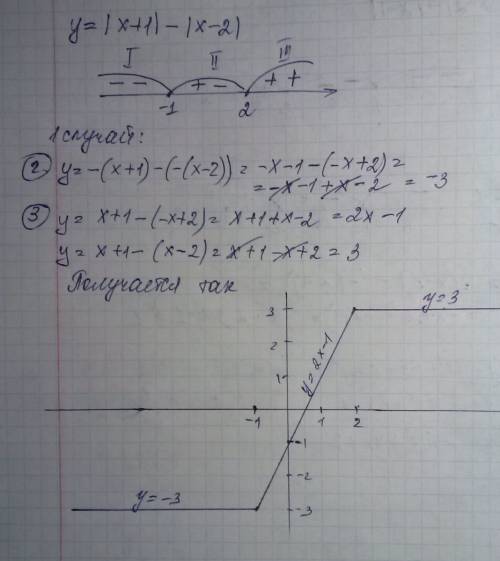 y=|x+1|-|x-2|
I II III
- - + - + +
-1 2
1 случай:
② y=-(x+1)-(-(x-2))= -x-1-(-x+2)=
= -x-1+x-2 = -3
③ y= x+1-(-x+2)= x+1+x-2 =2x-1
y= x+1-(x-2)= x+1-x+2= 3
Получается так
3
y=3
2
1
y=2x-1
-1 1 2
-1
-2
y=-3
-3